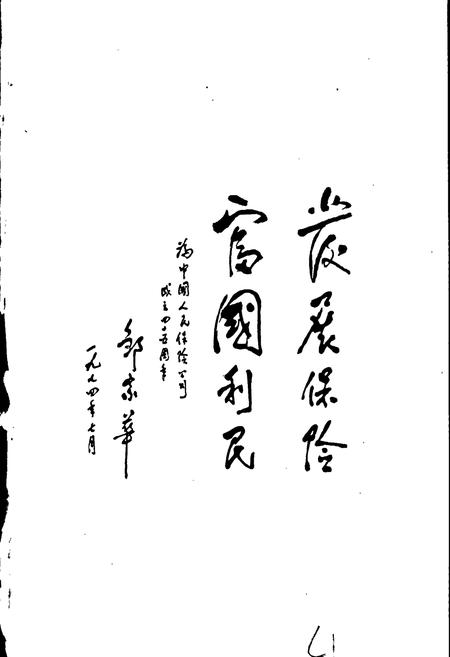 發展保险
富國利民
为中国人民保险公司
成立四十五周年
邹家华
一九九四年七月